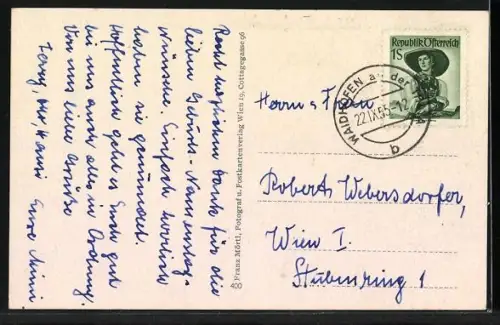 Recht herzlichen Dank für die
lieben Geburts- Namenstag-
Wünsche. Einfach herrlich
haben
Hoffentlich geht es Euch gut
bei uns auch alles in Ordnung.
Von uns liebe Grüße
Eure Mimi
400 Franz Mörtl, Fotograf u. Postkartenverlag Wien 19, Cottagegasse 96
Republik Österreich
1S
WAIDHOFEN an der
22.IX.55-12
b
Herrn u. Frau
Roberts Webersdorfer,
Wien I.
Stubenring 1